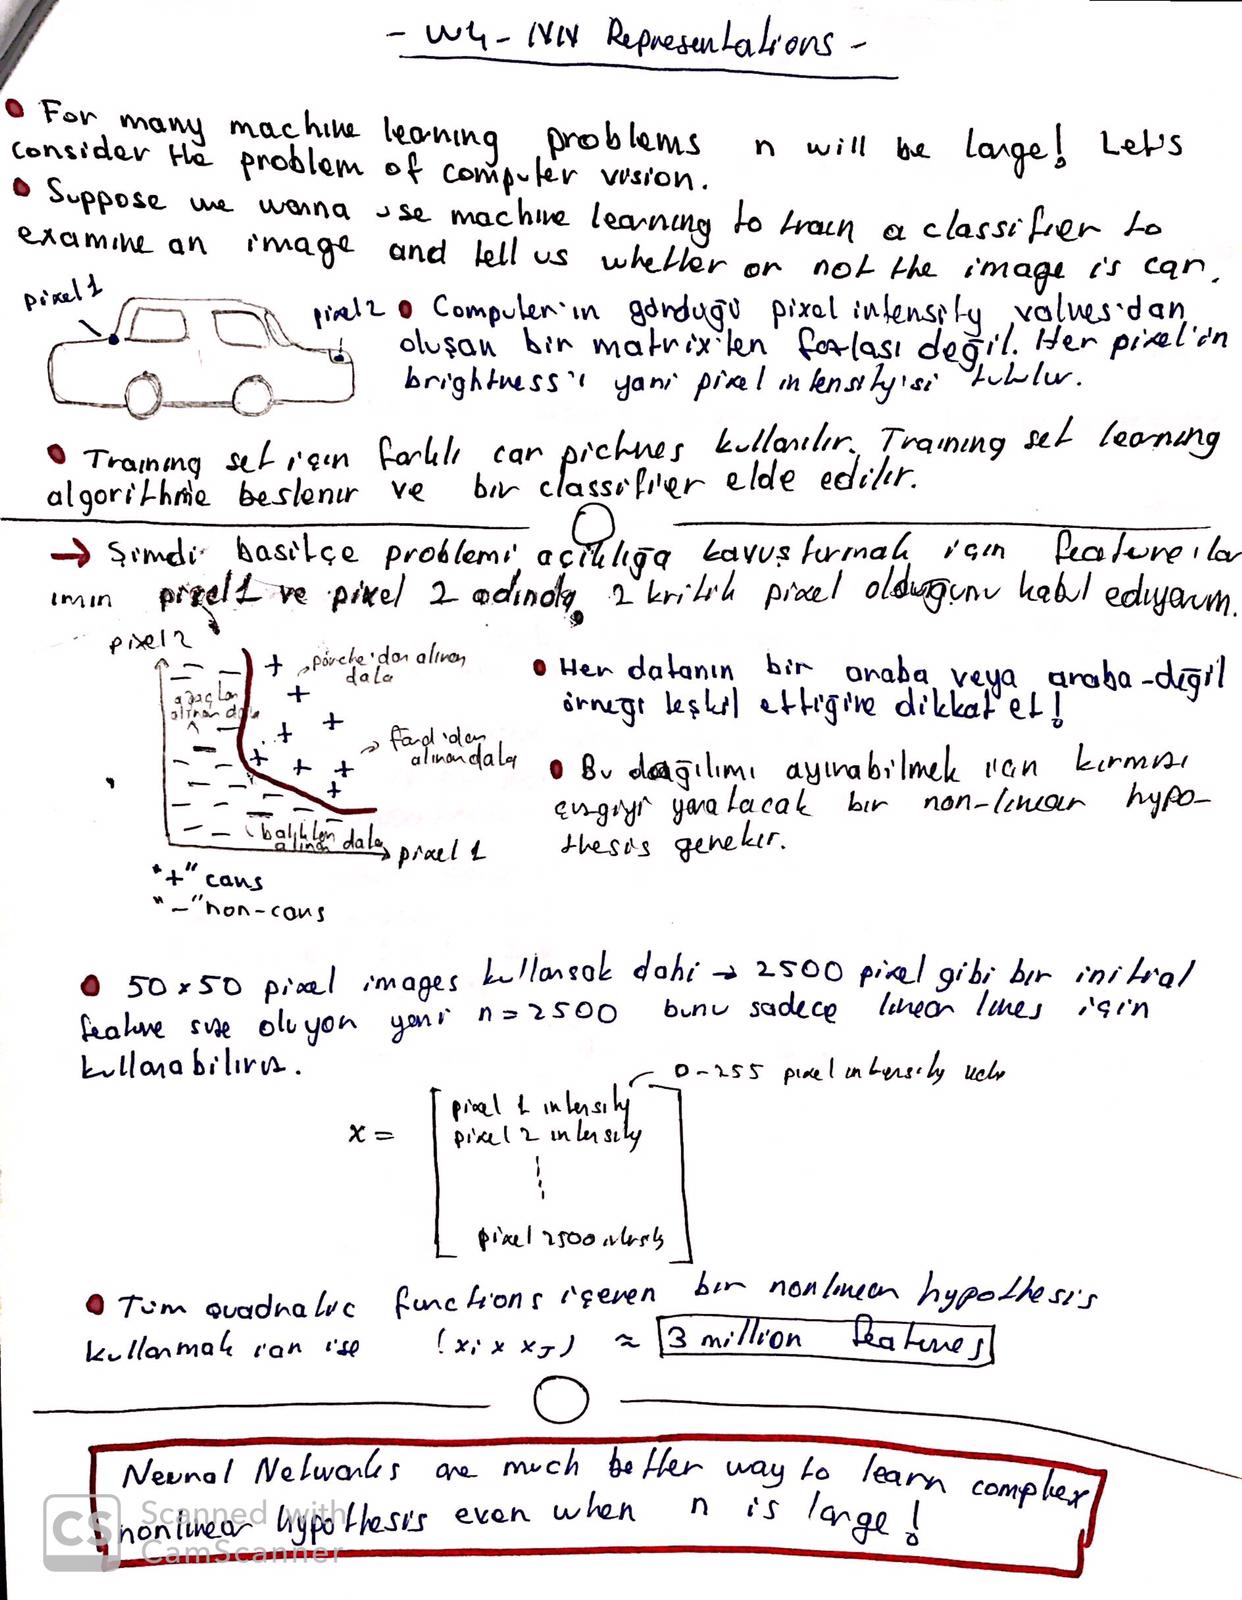 - W4 - NN Representations -
For many machine learning problems n will be large! Let's
consider the problem of computer vision.
Suppose we wanna use machine learning to train a classifier to
examine an image and tell us whether or not the image is car.
pixel 1
pixel 2
Computer'ın gördüğü pixel intensity values'dan
oluşan bir matrix'ten fazlası değil. Her pixel'in
brightness'ı yani pixel intensity'si tutulur.
Training set için farklı car pictures kullanılır. Training set learning
algorithme beslenir ve bir classifier elde edilir.
→ Şimdi basitçe problemi açıklığa kavuşturmak için feature'lar
ımın pixel 1 ve pixel 2 adında 2 kritik pixel olduğunu kabul ediyorum.
pixel 2
porche'dan alınan
data
ağaçtan
alınan data
ford'dan
alınan data
balıktan data
alınan
pixel 1
"+" cars
"-" non-cars
Her datanın bir araba veya araba-değil
örneği teşkil ettiğine dikkat et!
Bu dağılımı ayırabilmek için kırmızı
çizgiyi yaratacak bir non-linear hypo-
thesis gerekir.
50 x 50 pixel images kullansak dahi → 2500 pixel gibi bir initial
feature size oluyor yani n = 2500 bunu sadece linear lines için
kullanabiliriz.
0-255 pixel intensity
x =
pixel 1 intensity
pixel 2 intensity
pixel 2500 intensity
Tüm quadratic functions içeren bir nonlinear hypothesis
kullanmak için ise (xi x xJ) ≈ 3 million features
Neural Networks are much better way to learn complex
nonlinear hypothesis even when n is large!
CS Scanned with
CamScanner